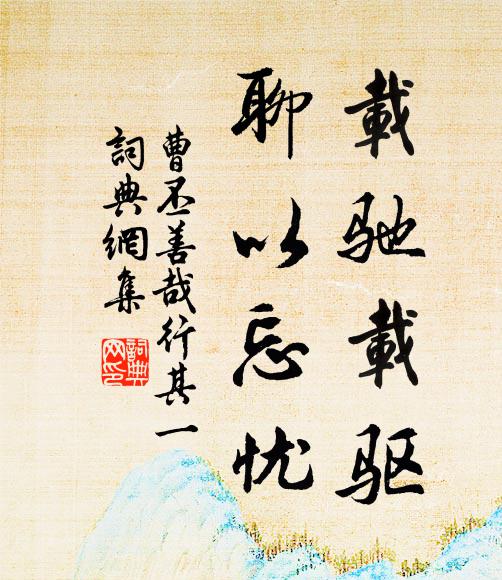 載驰載驱
聊以忘忧
曹丕善哉行其一
詞典網集
詞典
网印